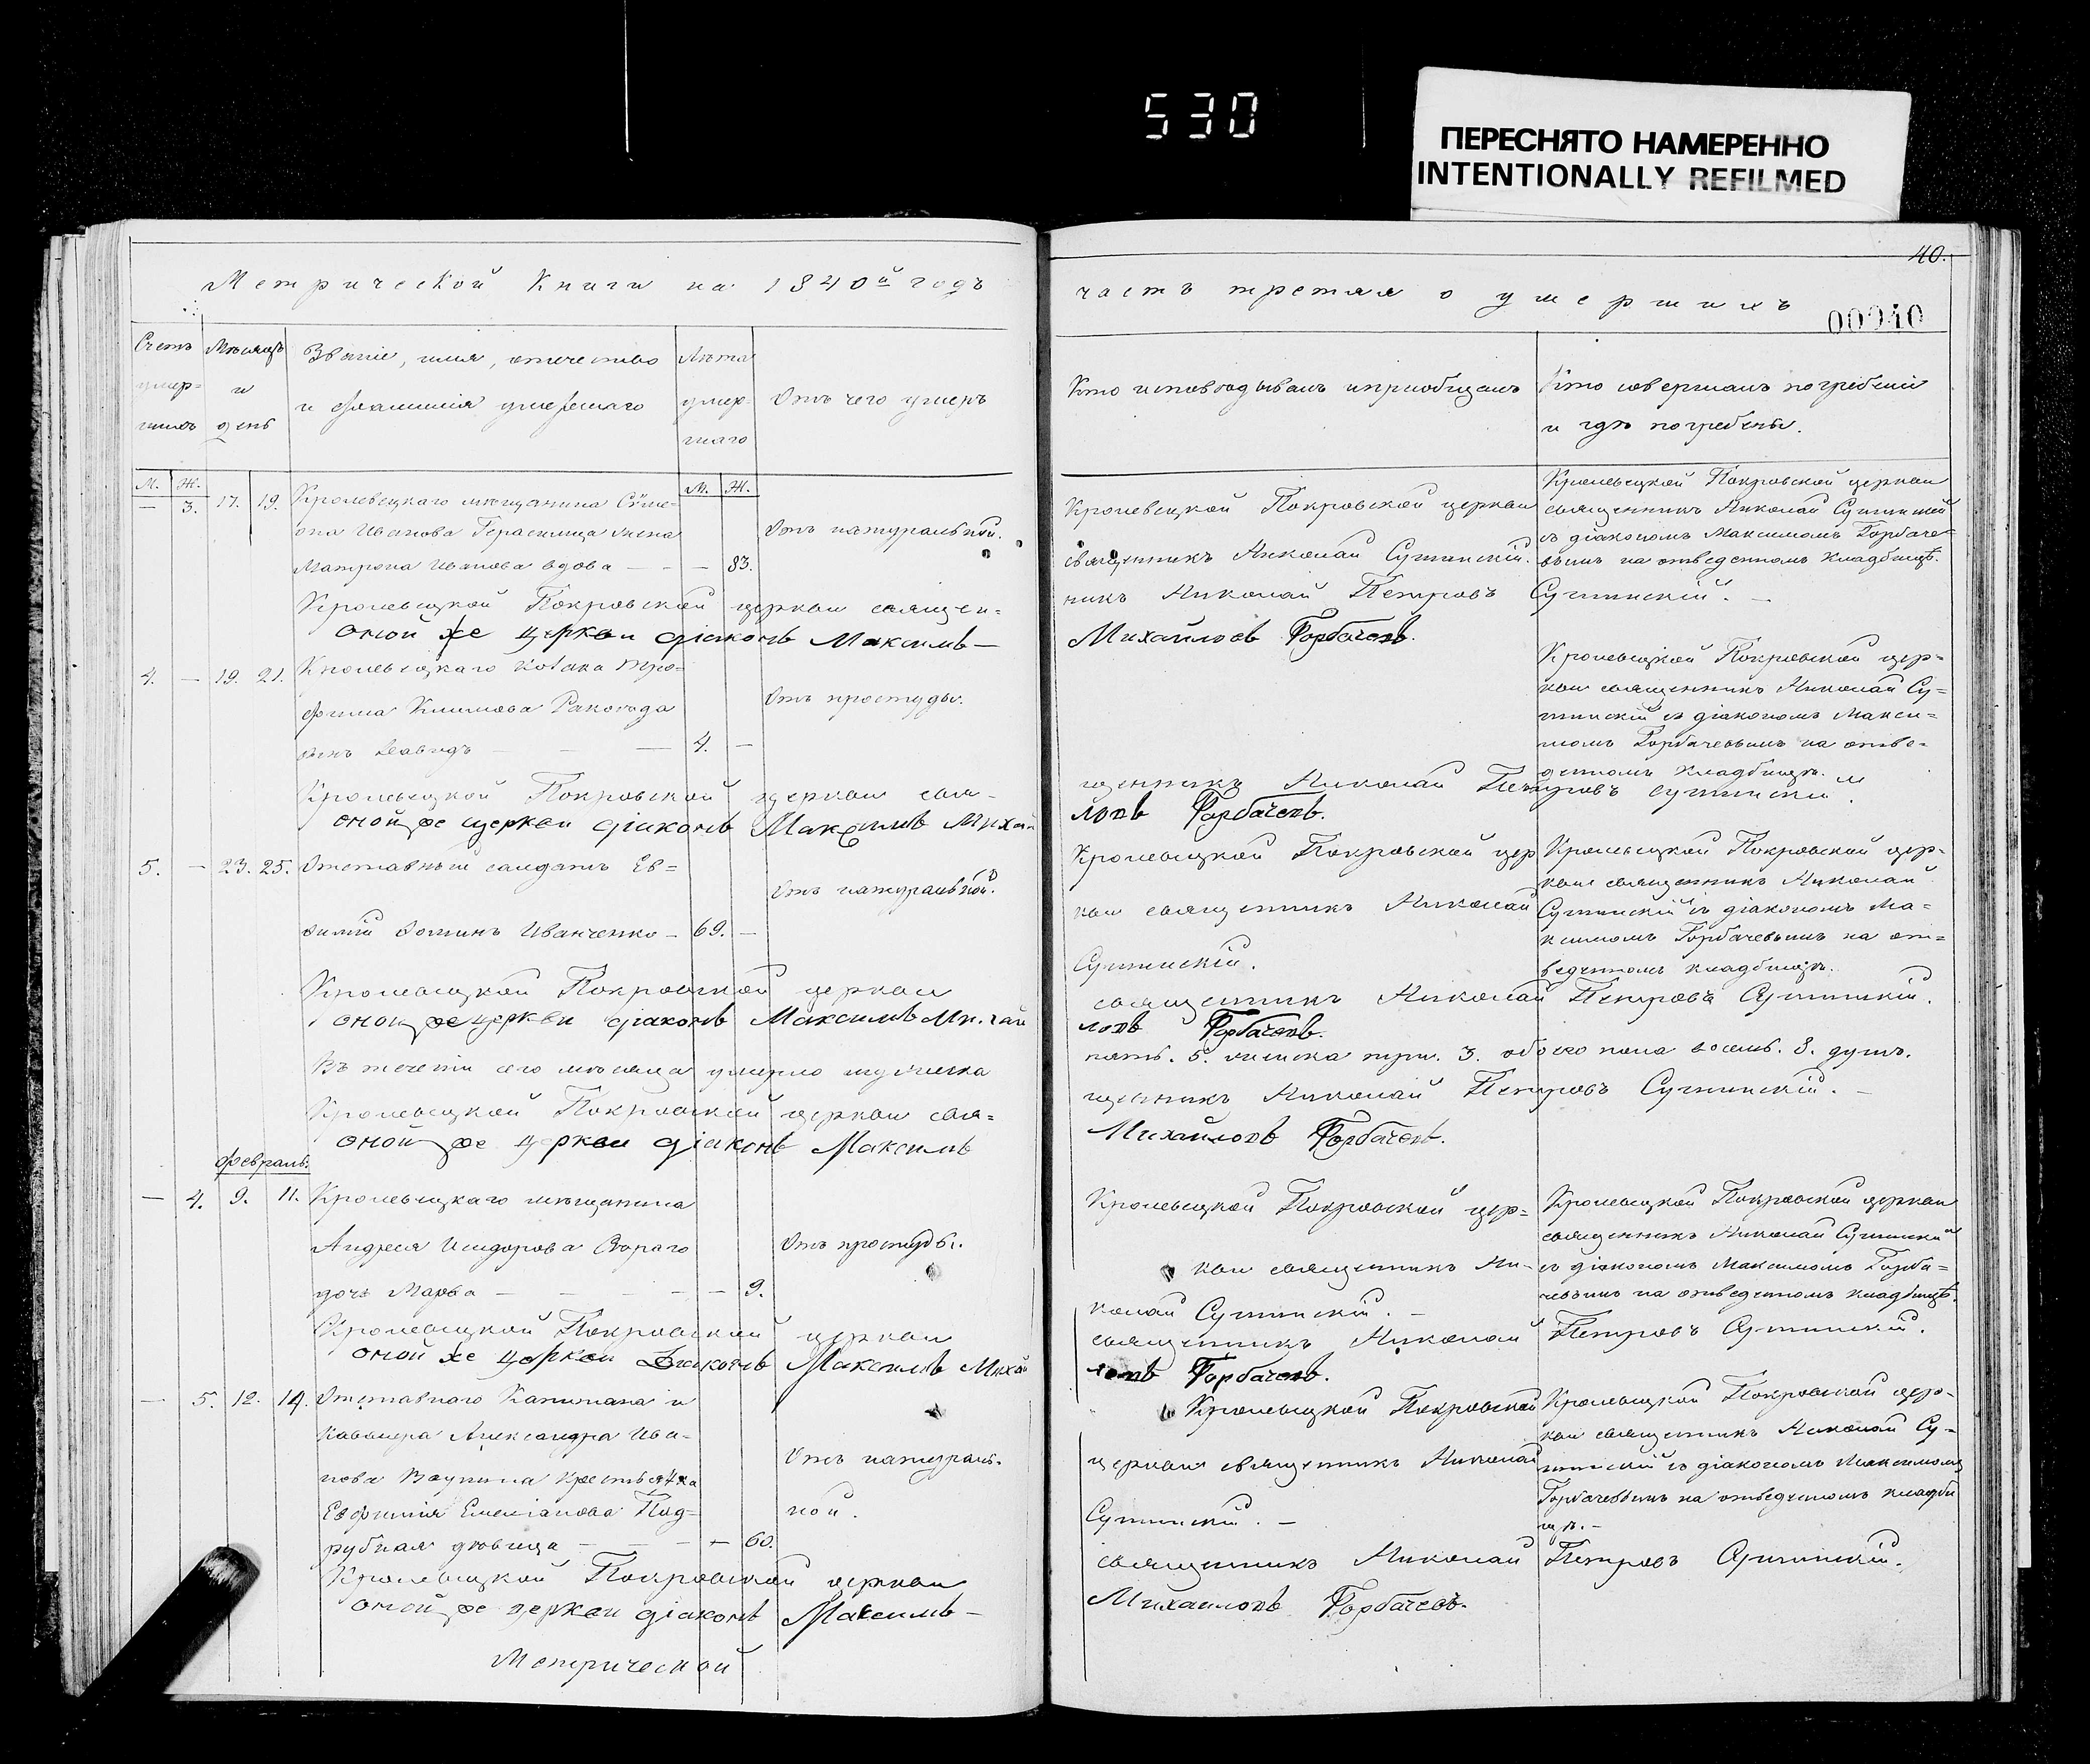 530
ПЕРЕСНЯТО НАМЕРЕННО
INTENTIONALLY REFILMED
Метрической Книги на 1840й годъ
часть третяя о умершихъ
40.
00040
Счетъ умер- шихъ
Мѣсяцъ и день
Званіе, имя, отечество
и фамилія умершаго
Лѣта умер- шаго
Отъ чего умеръ
Кто исповѣдывалъ и пріобщалъ
Кто совершалъ погребеніе
и гдѣ погребены.
М. Ж.
М. Ж.
— 3. 17. 19. Кролевецкаго мѣщанина Сѵме-
она Иванова жена
Матрона Иванова вдова — — 83.
Отъ натуральной.
Кролевецкой Покровской церкви
священникъ Николай
Кролевецкой Покровской церкви
священникъ Николай
съ діакономъ Максимомъ Горбаче-
вымъ на отведенномъ кладбищѣ.
Кролевецкой Покровской церкви священ-
никъ Николай Петровъ
оной же церкви діаконъ Максимъ —
Михайловъ Горбачевъ.
4. — 19. 21. Кролевецкаго козака Тро-
фима Климова
сынъ Давидъ — — 4. —
Отъ простуды.
Кролевецкой Покровской цер-
кви священникъ Николай
съ діакономъ Макси-
момъ Горбачевымъ на отве-
денномъ кладбищѣ.
Кролевецкой Покровской церкви свя-
щенникъ Николай Петровъ
оной же церкви діаконъ Максимъ Михай
ловъ Горбачевъ.
5. — 23. 25. Отставный салдатъ Ев-
фимій Фоминъ Иванченко — 69. —
Отъ натуральной.
Кролевецкой Покровской цер
кви священникъ Николай
Кролевецкой Покровской цер-
кви священникъ Николай
съ діакономъ Ма-
ксимомъ Горбачевымъ на от-
веденномъ кладбищѣ.
Кролевецкой Покровской церкви
священникъ Николай Петровъ
оной же церкви діаконъ Максимъ Михай
ловъ Горбачевъ.
Въ теченіи сего мѣсяца умерло мужеска
пять. 5. женска три. 3. обоего пола восемь. 8. душъ.
Кролевецкой Покровской церкви свя-
щенникъ Николай Петровъ
оной же церкви діаконъ Максимъ
Михайловъ Горбачевъ.
Февраль.
— 4. 9. 11. Кролевецкаго мѣщанина
Андрея Исидорова
дочь Марѳа — — — 9.
Отъ простуды.
Кролевецкой Покровской цер-
кви священникъ Ни-
колай
Кролевецкой Покровской церкви
священникъ Николай
съ діакономъ Максимомъ Горба-
чевымъ на отведенномъ кладбищѣ.
Кролевецкой Покровской церкви
священникъ Николай Петровъ
оной же церкви Діаконъ Максимъ Михай
ловъ Горбачевъ.
— 5. 12. 14. Отставнаго Капитана и
Кавалера Александра Ива-
нова крестьянка
Евфимія Емеліанова Под-
рубная дѣвица — — — 60.
Отъ натураль-
ной.
Кролевецкой Покровской
церкви священникъ Николай
Кролевецкой Покровской цер-
кви священникъ Николай
съ діакономъ Максимомъ
Горбачевымъ на отведенномъ кладби
щѣ. —
Кролевецкой Покровской церкви
священникъ Николай Петровъ
оной же церкви діаконъ Максимъ —
Михайловъ Горбачевъ.
Метрической